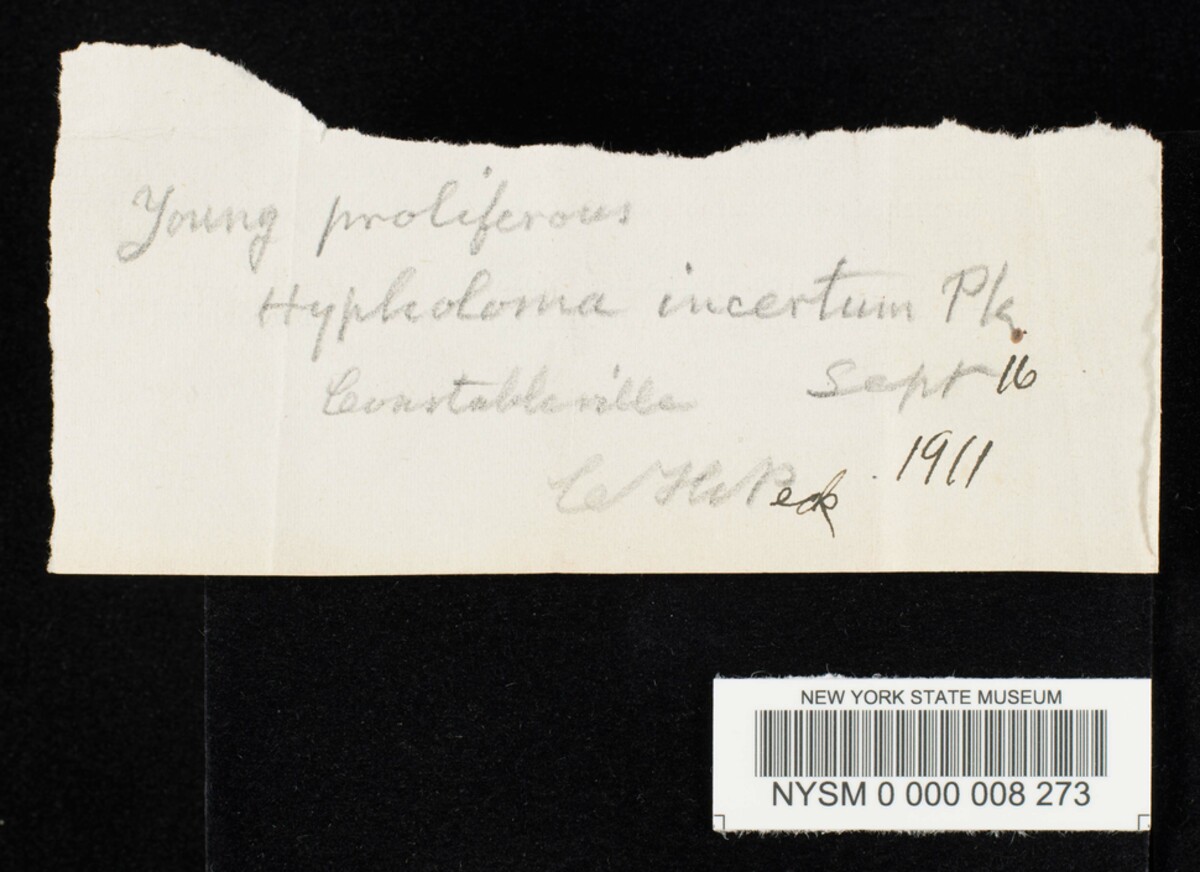 Young proliferous
Hypholoma incertum Pk.
Constableville Sept 16
C H Peck. 1911
NEW YORK STATE MUSEUM
NYSM 0 000 008 273